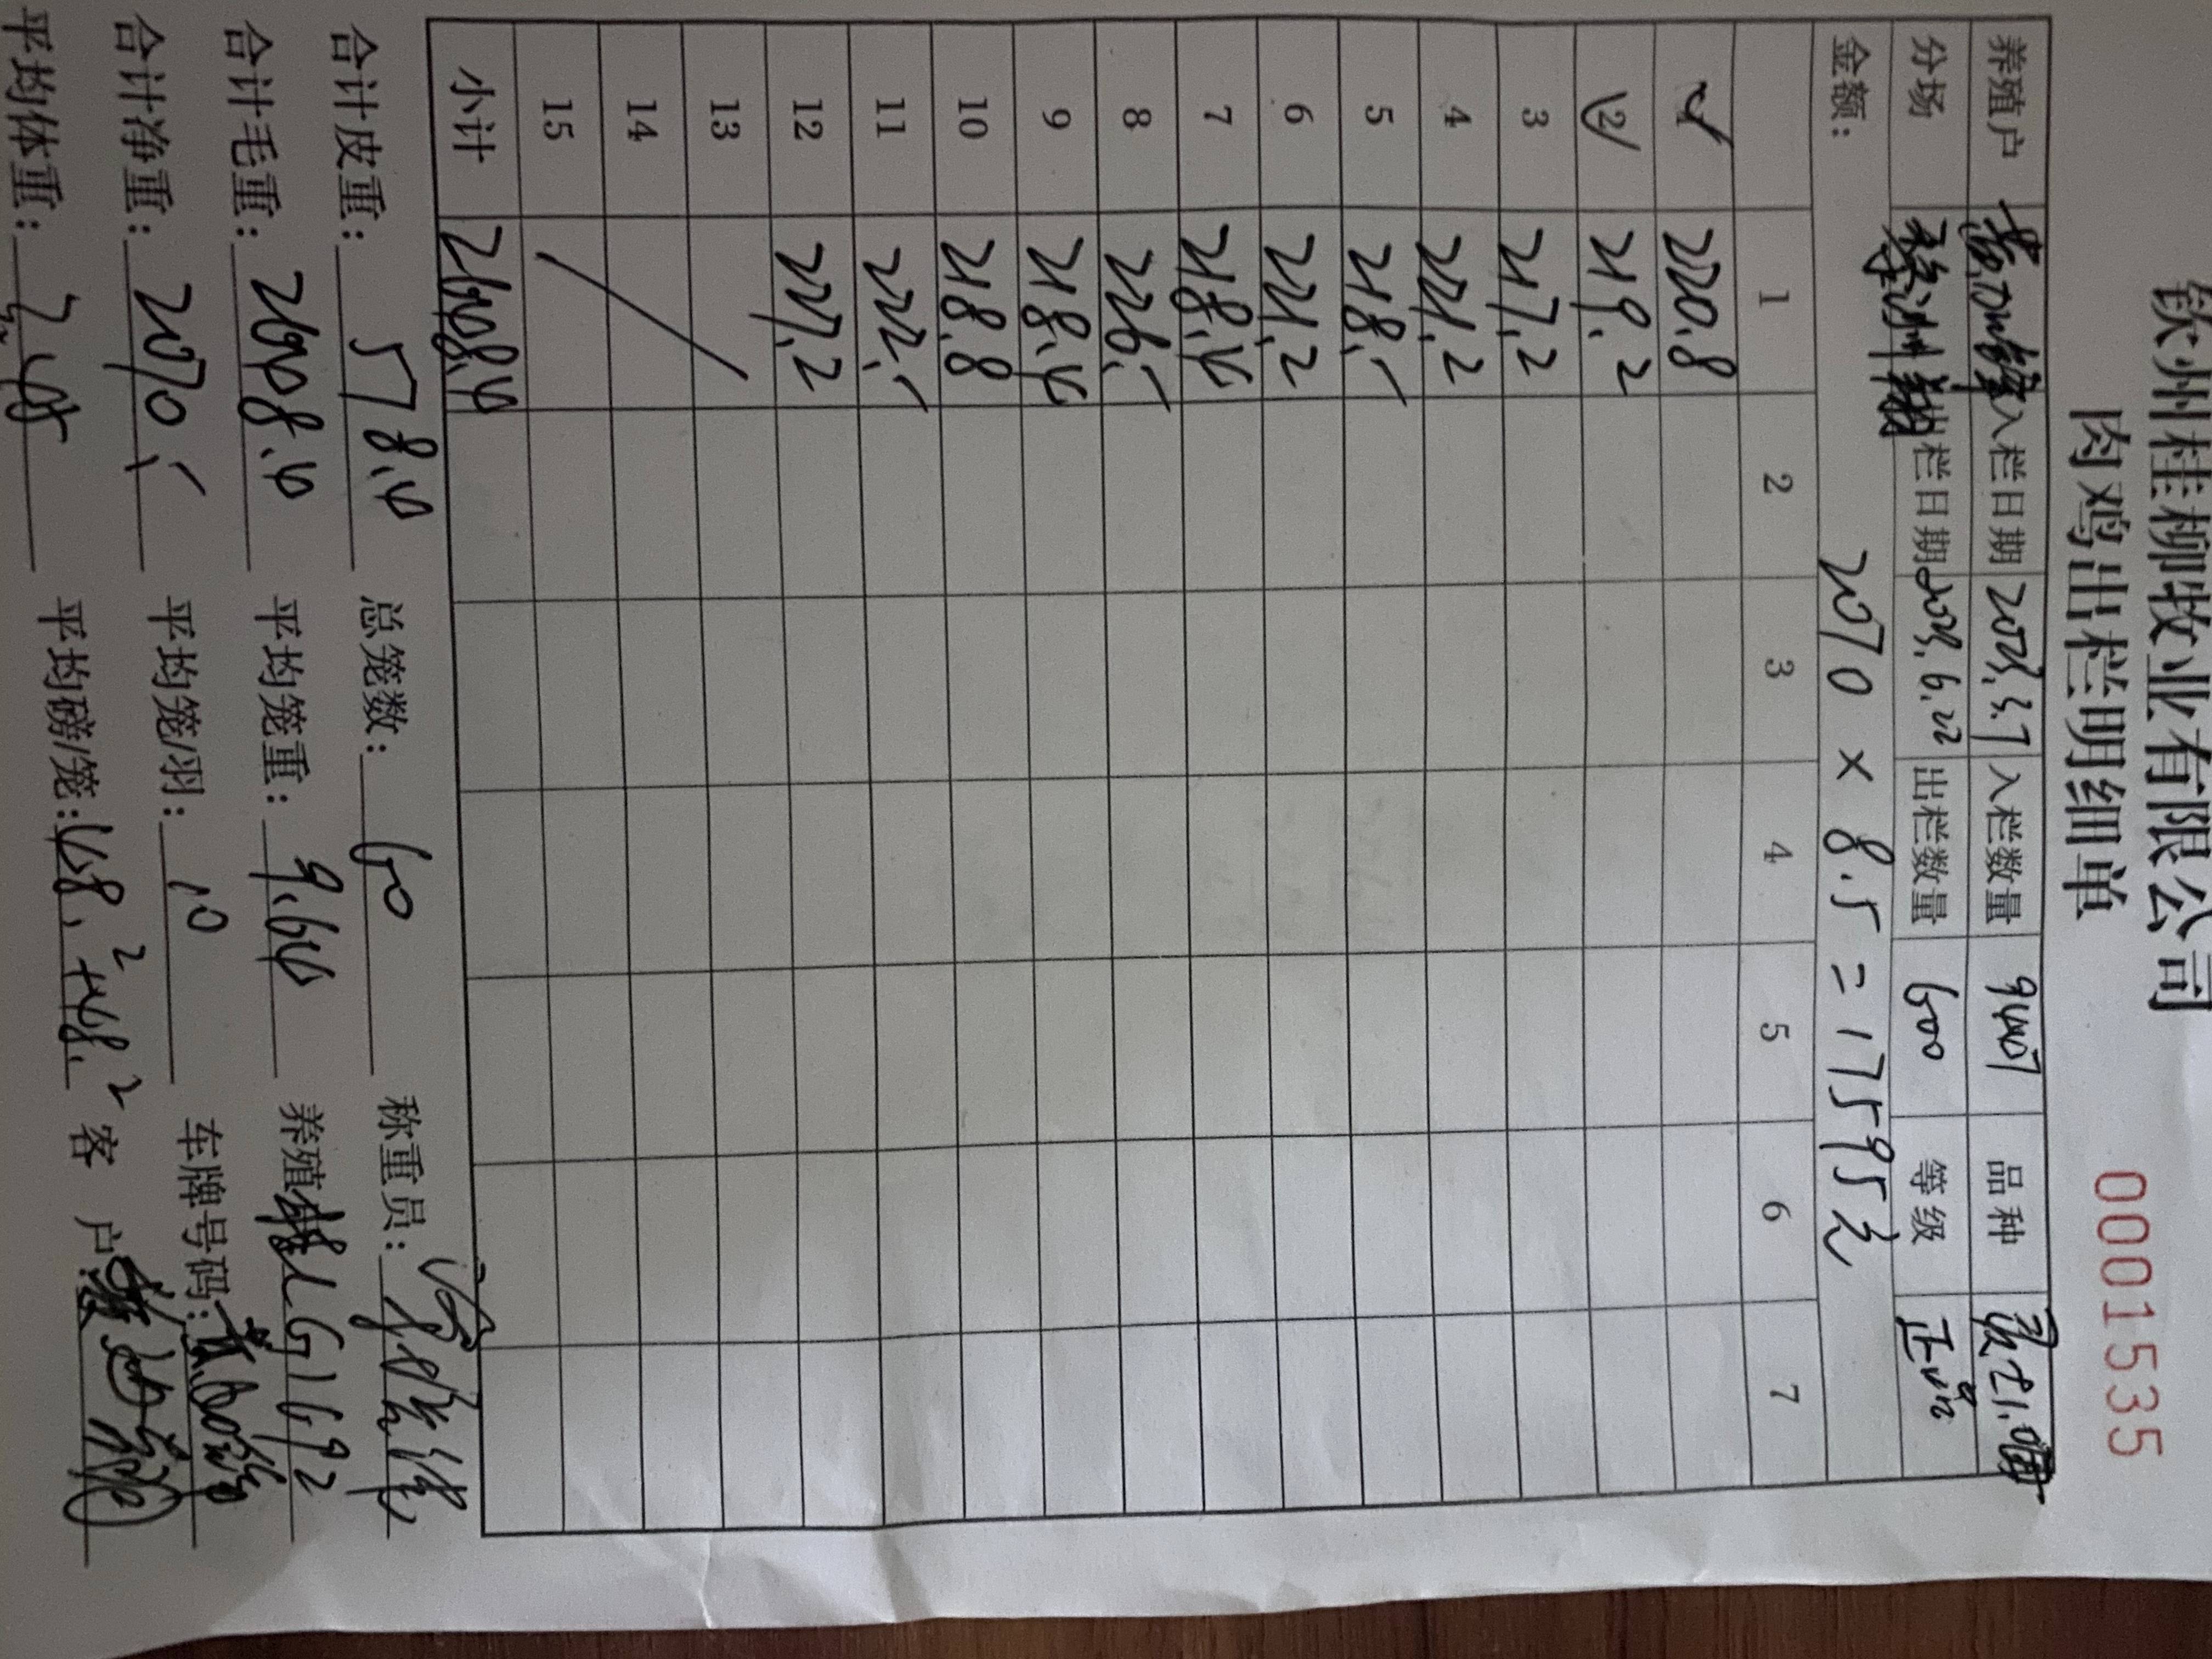 钦州桂柳牧业有限公司
肉鸡出栏明细单
00001535
养殖户 入栏日期 2023.3.7 入栏数量 品种
分场 出栏日期 2023.6.22 出栏数量 600 等级
金额: 2070 × 8.5 = 17595元
1 2 3 4 5 6 7
220.8
2 219.2
3 217.2
4 221.2
5 218.
6 221.2
7 218.4
8 226.
9 218.4
10 218.8
11 222.
12 227.2
13
14
15
小计 2648.4
合计皮重: 578.4 总笼数: 60 称重员:
合计毛重: 2648.4 平均笼重: 9.64 养殖 G1692
合计净重: 2070. 平均笼/羽: 10 车牌号码:
平均体重: 3.45 平均磅/笼: 客 户: